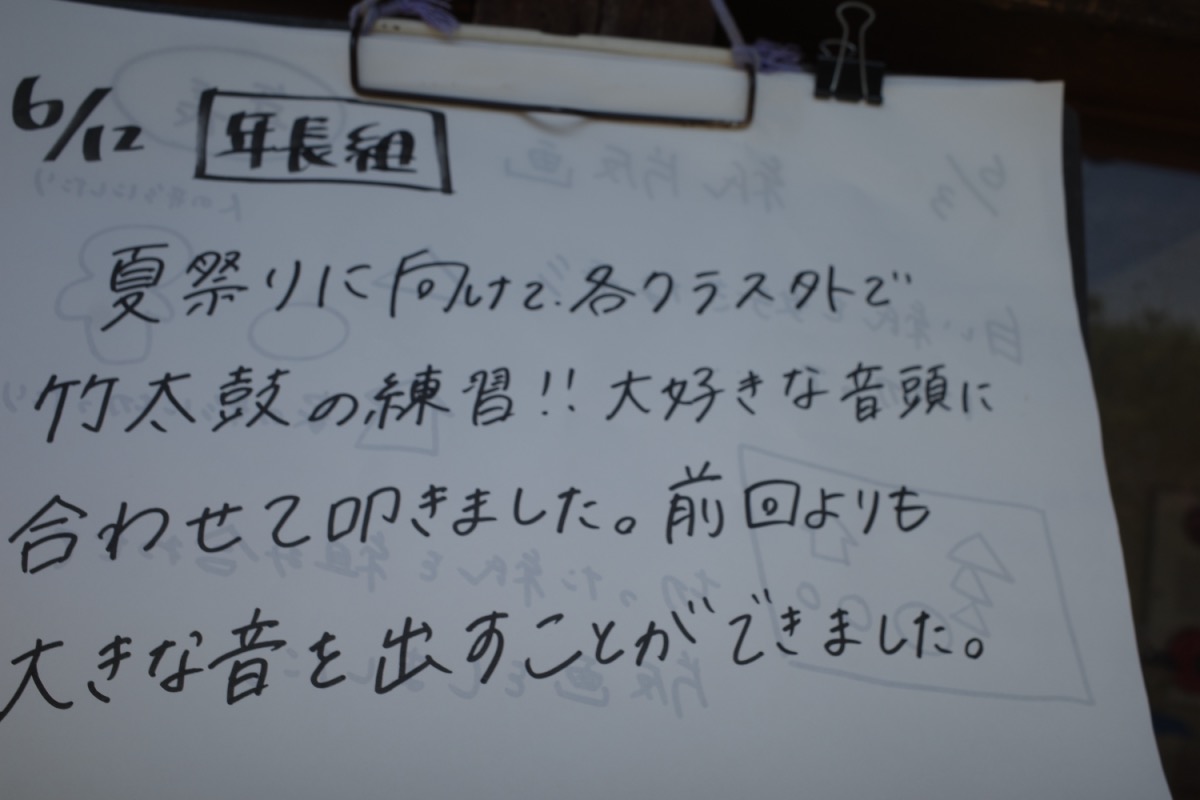 6/12 年長組
夏祭りに向けて、各クラス外で
竹太鼓の練習!! 大好きな音頭に
合わせて叩きました。前回よりも
大きな音を出すことができました。